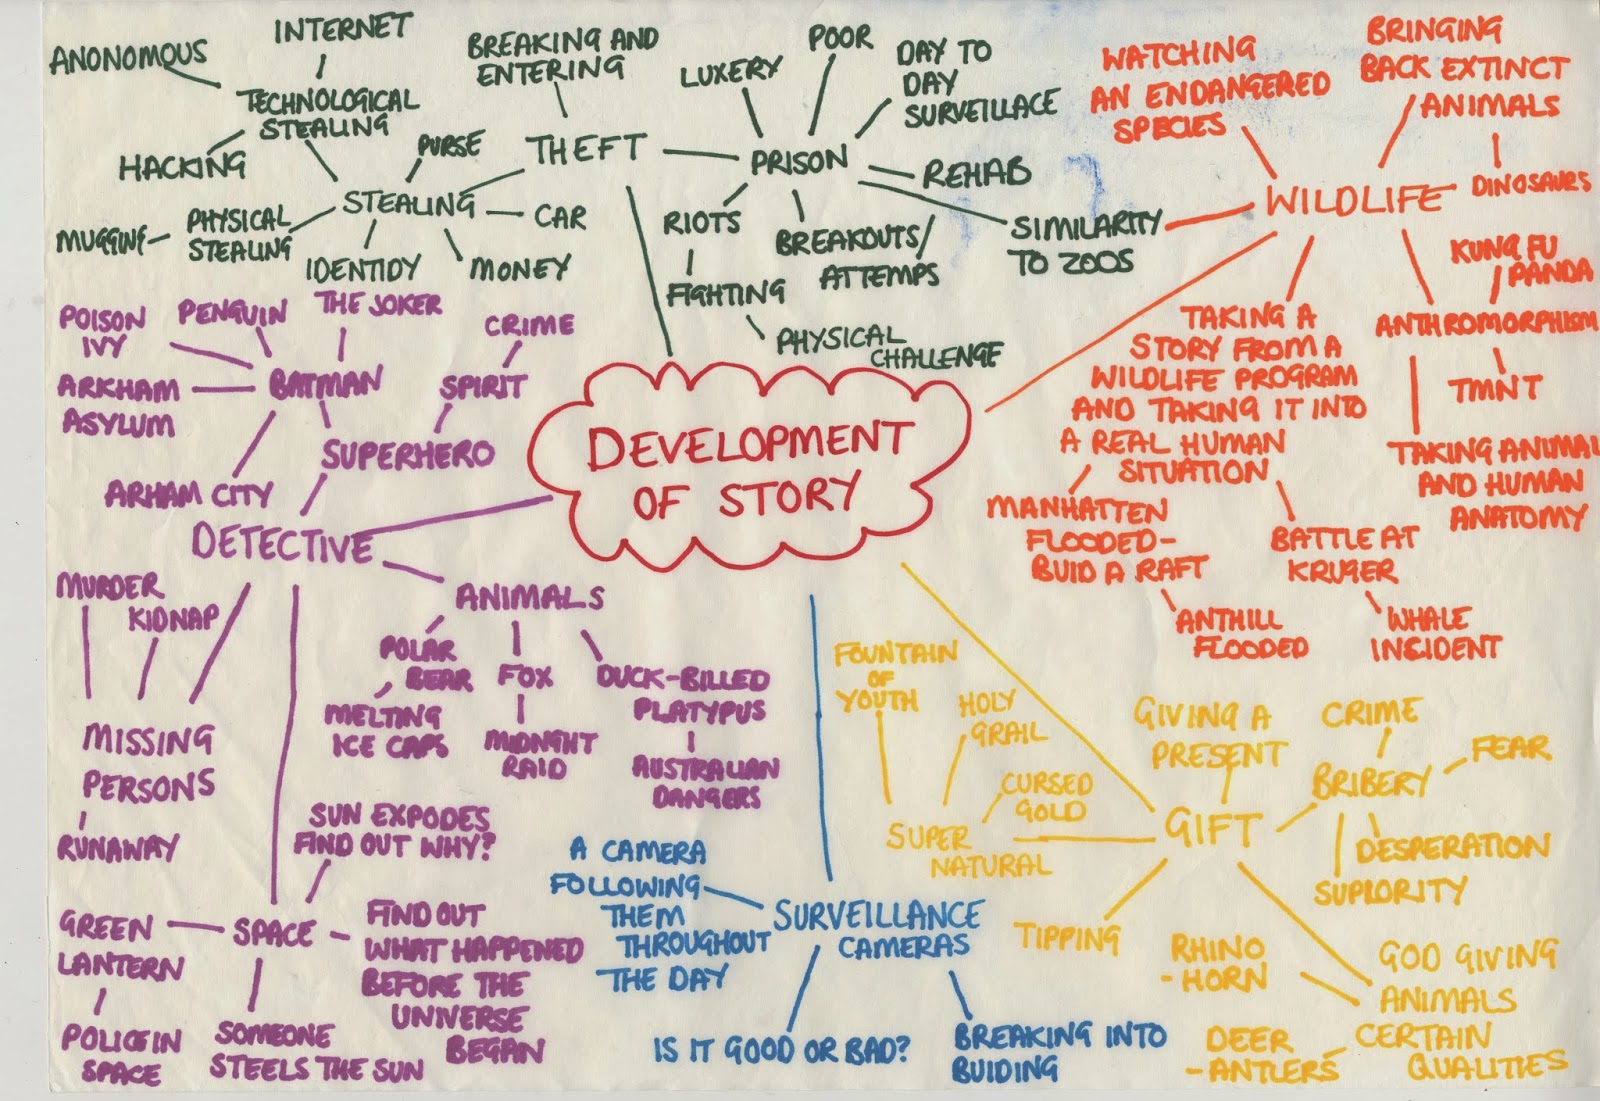 ANONOMOUS
INTERNET
TECHNOLOGICAL
STEALING
HACKING
BREAKING AND
ENTERING
THEFT
PURSE
STEALING
CAR
MUGGING
PHYSICAL
STEALING
IDENTIDY
MONEY
LUXERY
POOR
DAY TO
DAY
SURVEILLACE
PRISON
REHAB
RIOTS
FIGHTING
PHYSICAL
CHALLENGE
BREAKOUTS/
ATTEMPS
SIMILARITY
TO ZOOS
WATCHING
AN ENDANGERED
SPECIES
BRINGING
BACK EXTINCT
ANIMALS
DINOSAURS
WILDLIFE
KUNG FU
PANDA
ANTHROMORPHISM
TMNT
TAKING ANIMAL
AND HUMAN
ANATOMY
TAKING A
STORY FROM A
WILDLIFE PROGRAM
AND TAKING IT INTO
A REAL HUMAN
SITUATION
MANHATTEN
FLOODED-
BUID A RAFT
ANTHILL
FLOODED
BATTLE AT
KRUGER
WHALE
INSIDENT
DEVELOPMENT
OF STORY
POISON
IVY
PENGUIN
THE JOKER
CRIME
ARKHAM
ASYLUM
BATMAN
SPIRIT
SUPERHERO
ARHAM CITY
DETECTIVE
MURDER
KIDNAP
MISSING
PERSONS
RUNAWAY
ANIMALS
POLAR
BEAR
MELTING
ICE CAPS
FOX
MIDNGHT
RAID
DUCK-BILLED
PLATYPUS
AUSTRALIAN
DANGERS
SUN EXPODES
FIND OUT WHY?
GREEN
LANTERN
SPACE
FIND OUT
WHAT HAPPENED
BEFORE THE
UNIVERSE
BEGAN
POLICE IN
SPACE
SOMEONE
STEELS THE SUN
A CAMERA
FOLLOWING
THEM
THROUGHOUT
THE DAY
SURVEILLANCE
CAMERAS
IS IT GOOD OR BAD?
BREAKING INTO
BUIDING
FOUNTAIN
OF
YOUTH
HOLY
GRAIL
CURSED
GOLD
SUPER
NATURAL
GIVING A
PRESENT
CRIME
FEAR
BRIBERY
GIFT
DESPERATION
SUPIORITY
TIPPING
RHINO
- HORN
GOD GIVING
ANIMALS
CERTAIN
QUALITIES
DEER
- ANTLERS